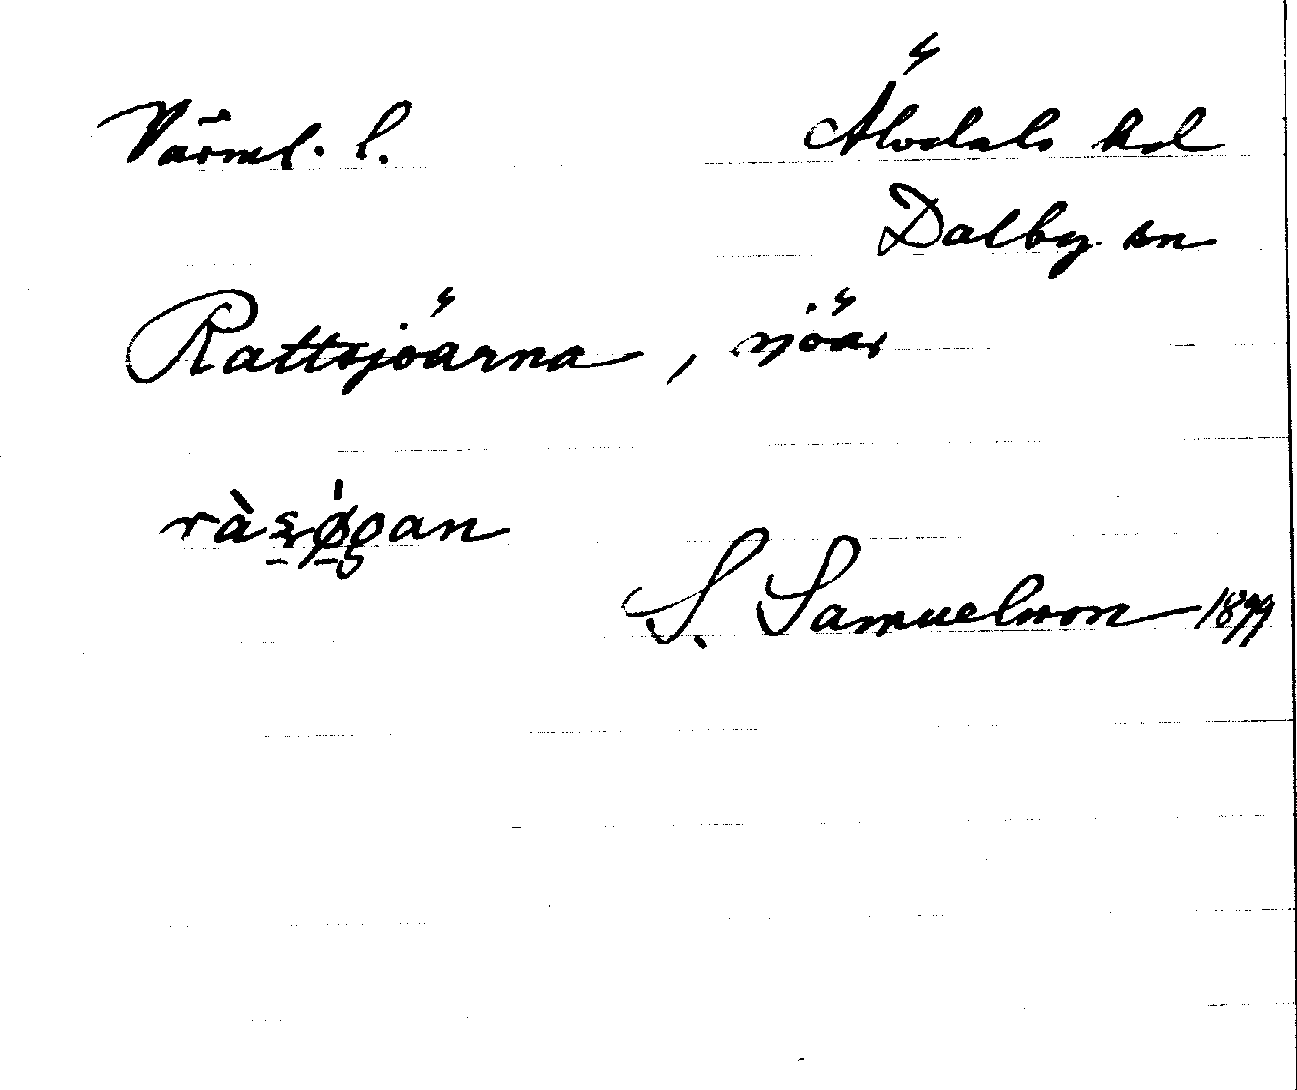 Värml. l. Älvdals hd
Dalby sn
Rattsjöarna, sjöar
ràsø̀gan
S. Samuelsson 1899